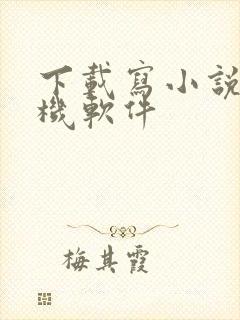 下載寫小說
機軟件
梅其霞